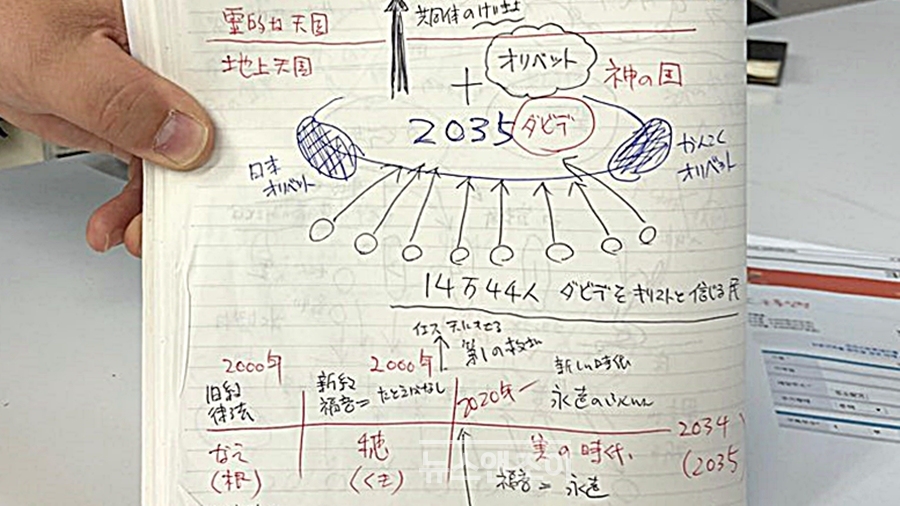 霊的な天国
共同体の
地上天国
オリベット
神の国
+
2035 ダビデ
日本
オリベット
かんこく
オリベット
14万44人 ダビデをキリストと信じる民
2000年
2000年
第1の
新しい時代
旧約
律法
新約
福音=たとえばなし
2020年ー
永遠のふくいん
2034
(2035
なえ
(根)
穂
(くき)
実の時代、
福音=永遠
뉴스앤조이